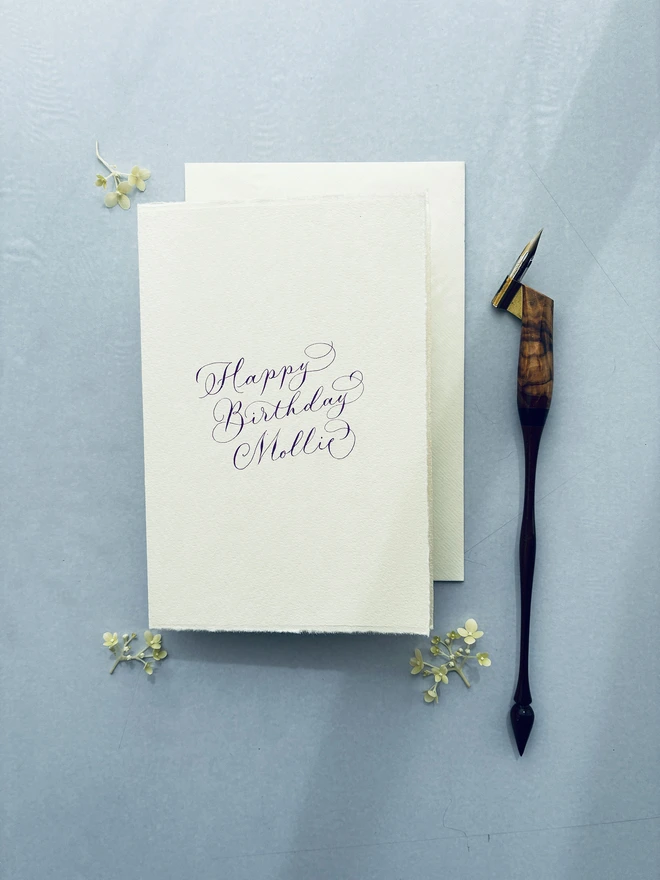 Happy
Birthday
Mollie